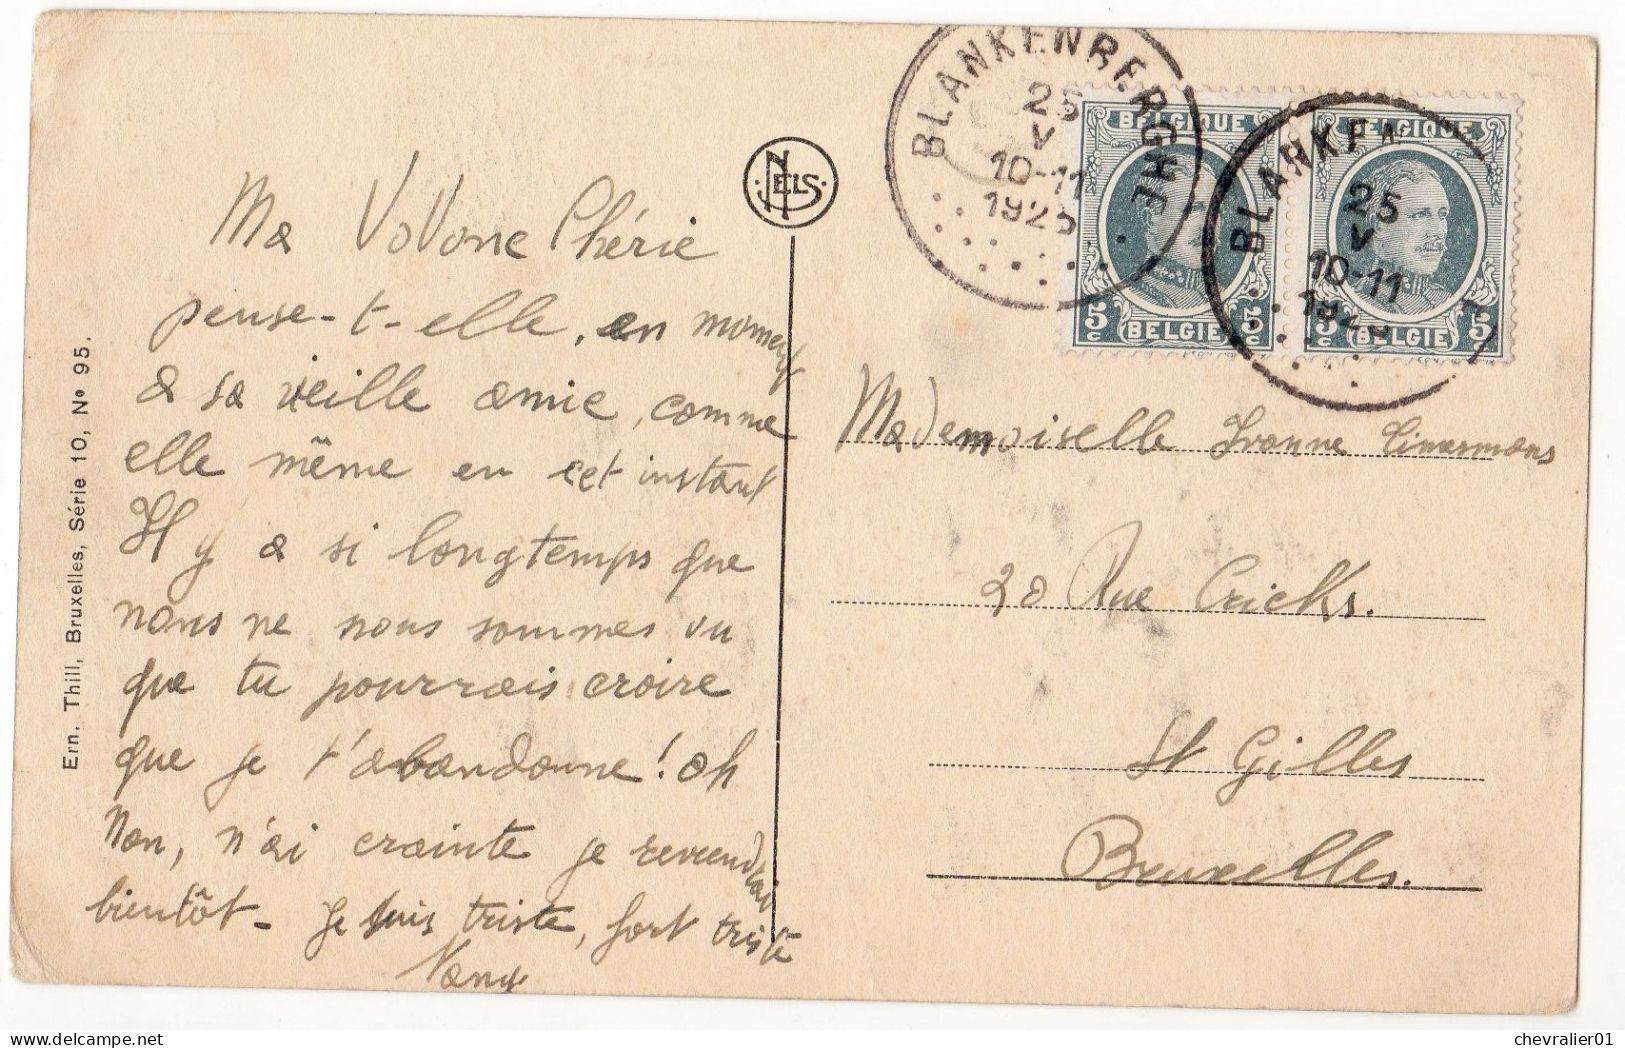 Ern. Thill, Bruxelles, Série 10, No 95.
NELS
BLANKENBERGHE
25
V
10-11
192
BLANKE
25
V
10-11
192
BELGIQUE
5c 5c
BELGIE
BELGIQUE
5c 5c
BELGIE
Ma VoVonne Chérie
pense-t-elle, en moment
a sa vieille amie, comme
elle même en cet instant
Il y a si longtemps que
nous ne nous sommes vu
que tu pourrais croire
que je t'abandonne! oh
Non, n'ai crainte je reviendrai
bientôt - Je suis triste, fort triste
Mademoiselle Ivonne
20 Rue Cricks.
St Gilles
Bruxelles.
chevralier01